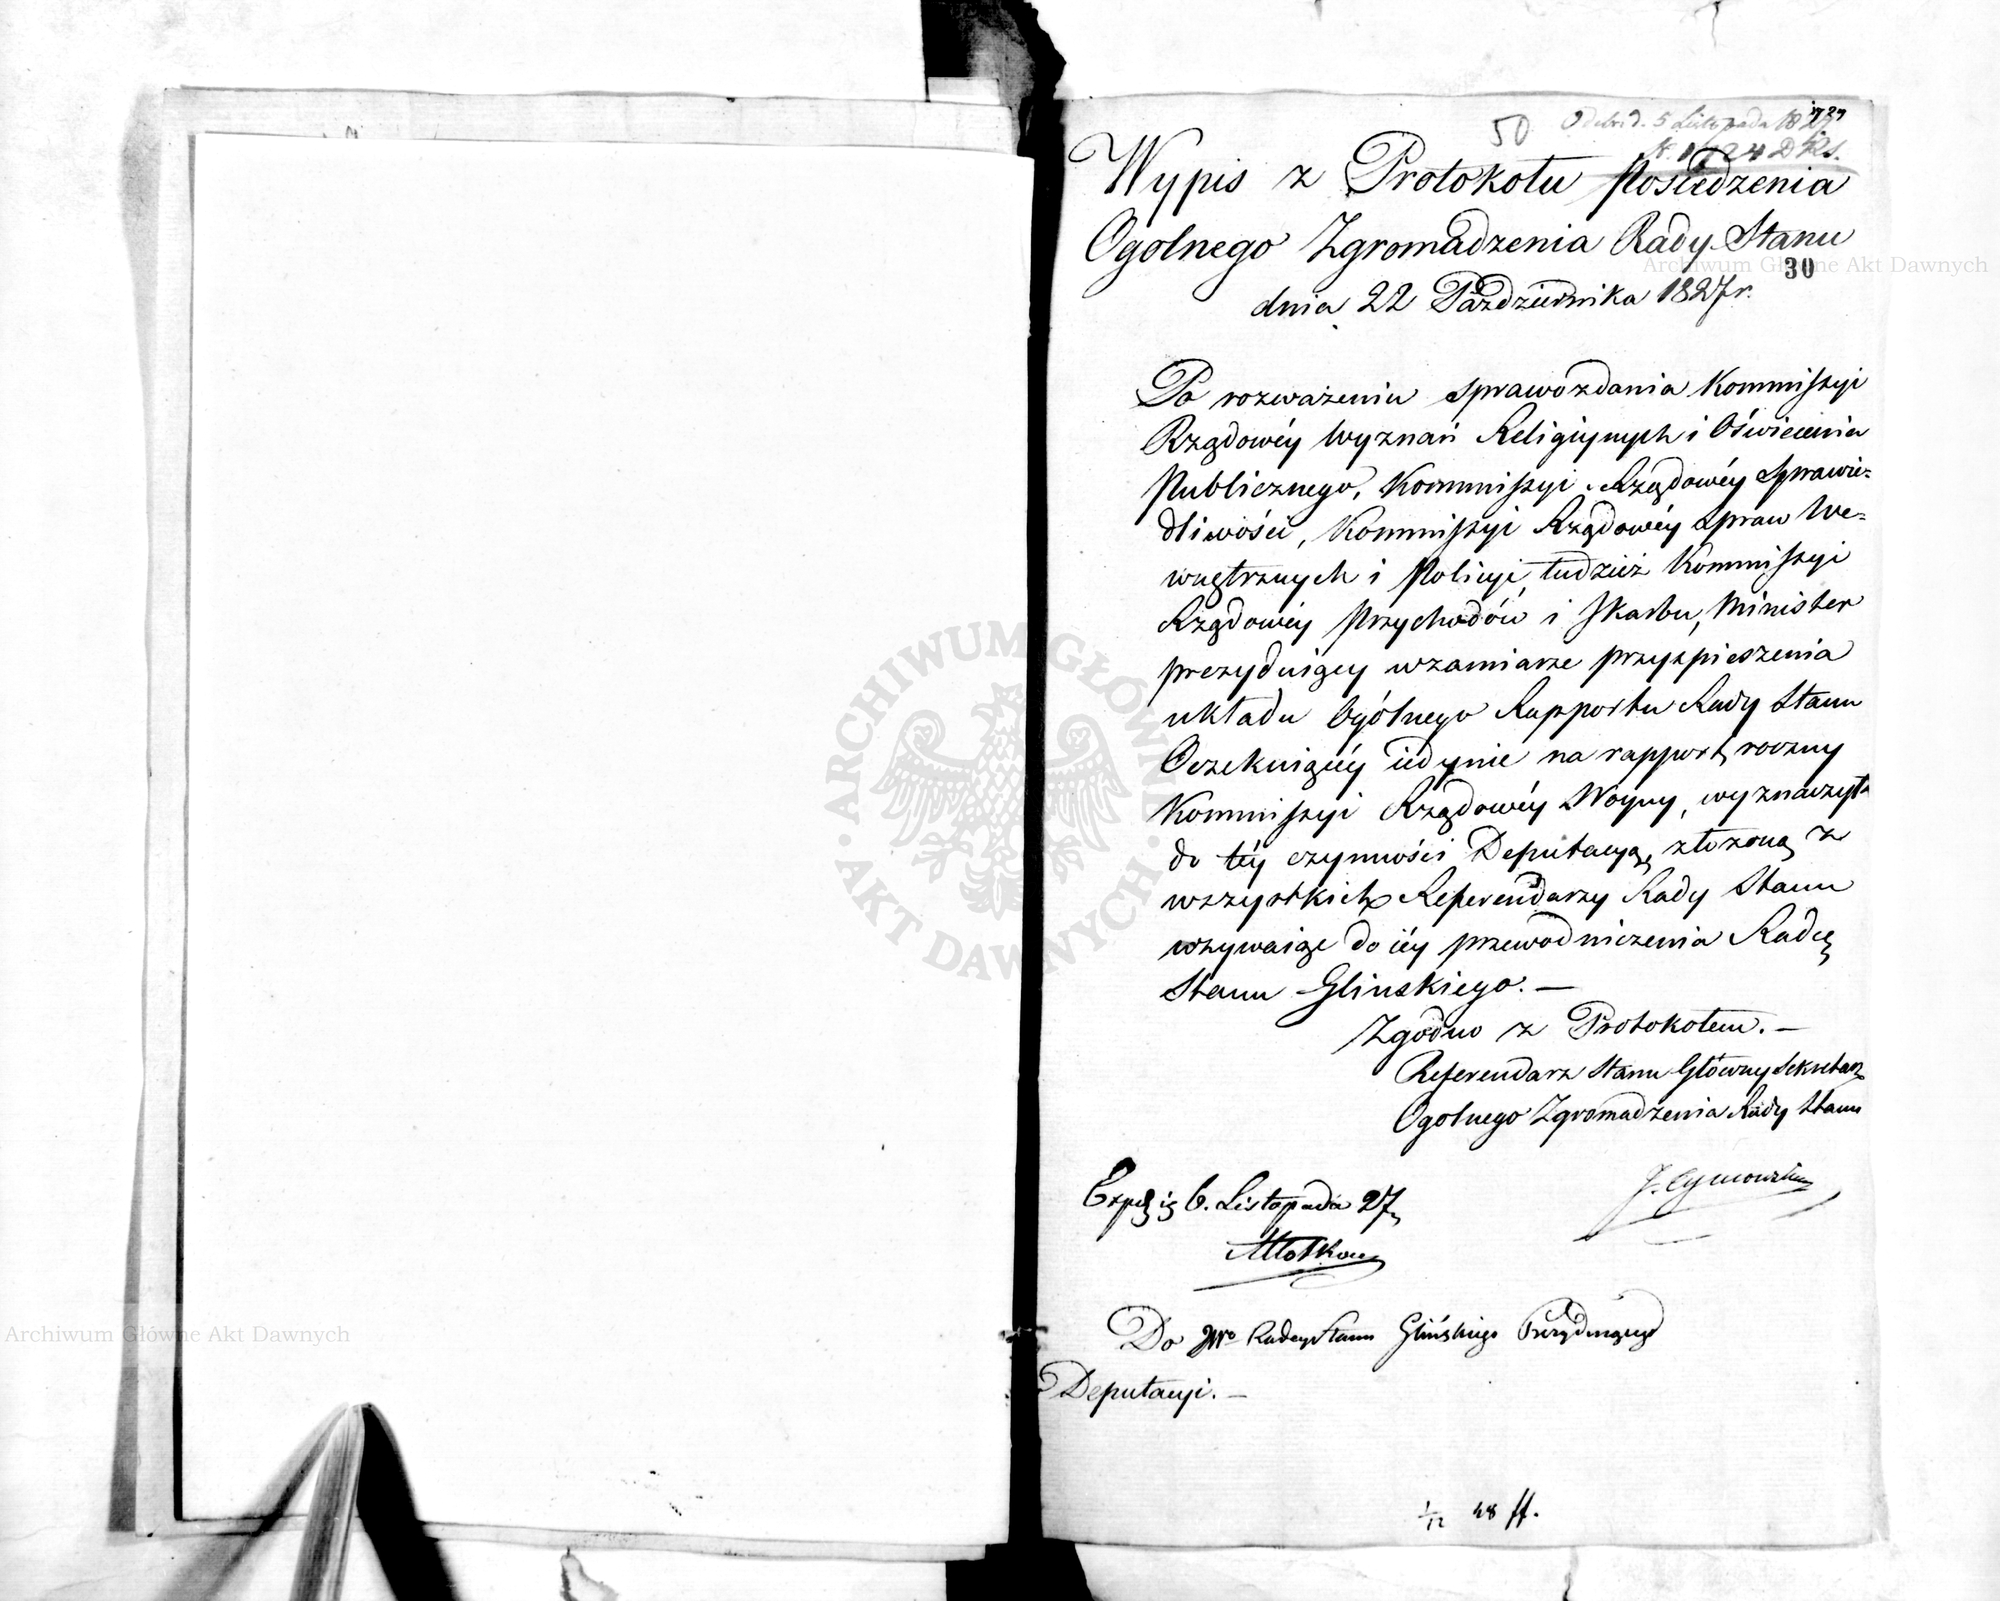 50 Odebr. d. 5 Listopada 1827
Wypis z Protokołu Posiedzenia
Ogolnego Zgromadzenia Rady Stanu
Archiwum Główne Akt Dawnych
30
dnia 22 Października 1827 r.
Po rozważeniu sprawozdania Kommissyi
Rządowéy Wyznań Religiynych i Oświecenia
Publicznego, Kommissyi Rządowéy Sprawie-
dliwości, Kommissyi Rządowéy Spraw We-
wnętrznych i Policyi, tudzież Kommissyi
Rządowéy Przychodów i Skarbu, Minister
prezyduiący w zamiarze przyspieszenia
układu Ogólnego Rapportu Rady Stanu
Oczekuiącéy iedynie na rapport roczny
Kommissyi Rządowéy Woyny, wyznaczył
do téy czynności Deputacyą, złożoną z
wszystkich Referendarzy Rady Stanu
wzywaiąc do iéy przewodniczenia Radcę
Stanu Glinskiego. —
Zgodno z Protokołem. —
Referendarz Stanu Główny Sekretarz
Ogolnego Zgromadzenia Rady Stanu
J. Tymowski
Exped. 6. Listopada 27
Do JWo Radcy Stanu Glińskiego Prezyduiącego
Deputacyi. —
48 ff.
ARCHIWUM GŁÓWNE · AKT DAWNYCH ·
Archiwum Główne Akt Dawnych